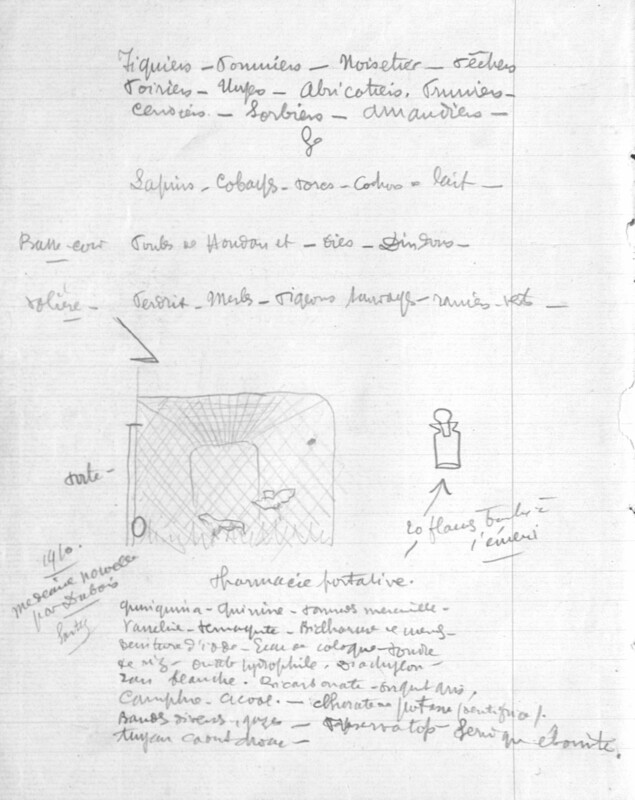 Figuiers – Pommiers – Noisetier – Pêchers
Poiriers – – Abricotiers. Pruniers –
Cerisiers – Sorbiers – Amandiers –
Lapins – Cobays – Porcs – – lait –
Basse-cour Poules de Houdan et – Oies – Dindons –
Volière – Perdrix – Merles – Pigeons sauvages – ramiers –
Porte –
20 flacons bouchés à
l'émeri
1910.
Médecine nouvelle
par Dubois
Pharmacie portative.
Quinquina – Quinine – Pommes merveille –
– Bicarbonate de
Teinture d'iode – Eau de cologne – Poudre
de riz – Ouate hydrophile – Diachylon –
blanche. Bicarbonate – onguent gris,
Camphre – alcool. – Chlorate de potasse (dentifrice).
Bandes diverses, gazes – Seringue ébonite.
tuyau caoutchouc –